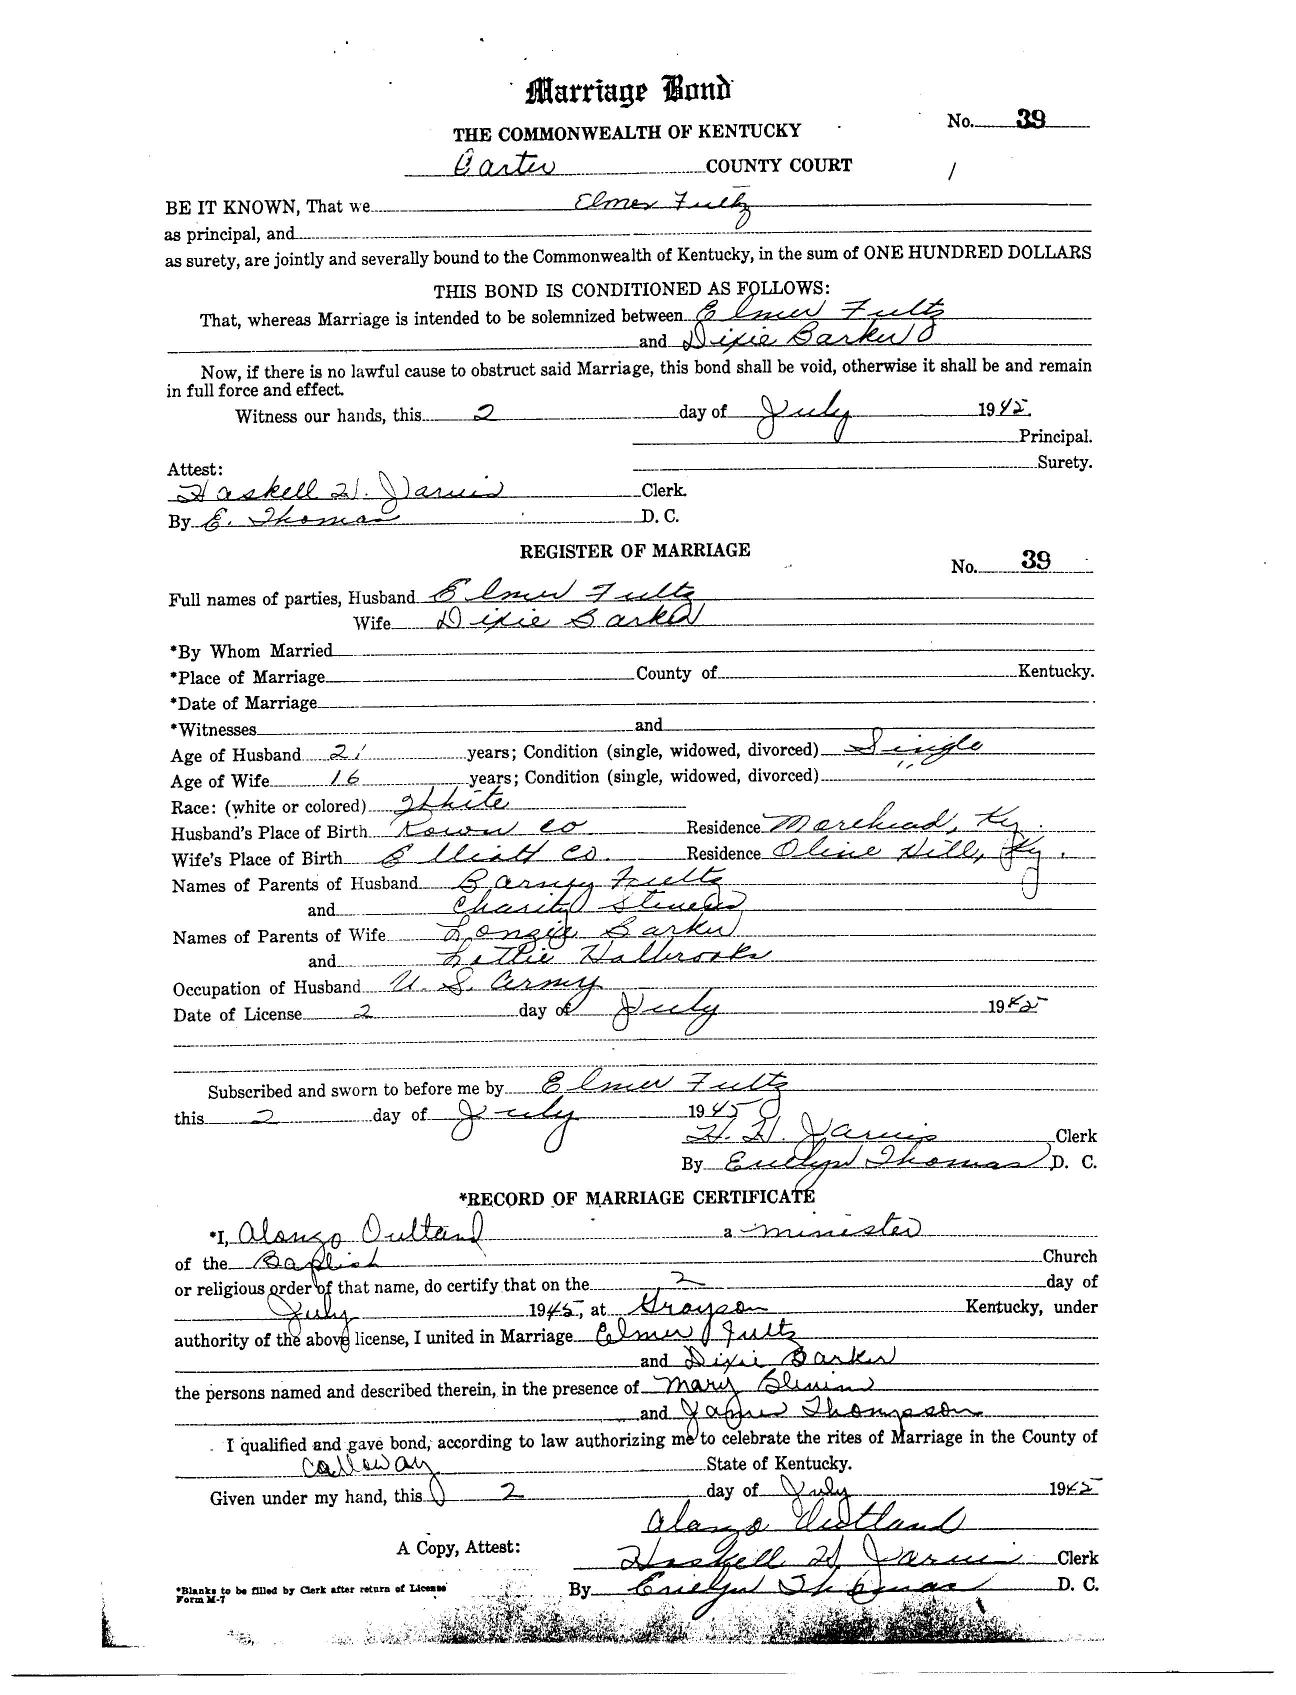 Marriage Bond
THE COMMONWEALTH OF KENTUCKY
No. 39
Carter COUNTY COURT
BE IT KNOWN, That we Elmer Fultz
as principal, and
as surety, are jointly and severally bound to the Commonwealth of Kentucky, in the sum of ONE HUNDRED DOLLARS
THIS BOND IS CONDITIONED AS FOLLOWS:
That, whereas Marriage is intended to be solemnized between Elmer Fultz
and Dixie Barker
Now, if there is no lawful cause to obstruct said Marriage, this bond shall be void, otherwise it shall be and remain
in full force and effect.
Witness our hands, this 2 day of July 1945.
Principal.
Surety.
Attest:
Haskell H. Jarvis Clerk.
By E. Thomas D. C.
REGISTER OF MARRIAGE
No. 39
Full names of parties, Husband Elmer Fultz
Wife Dixie Barker
*By Whom Married
*Place of Marriage County of Kentucky.
*Date of Marriage
*Witnesses and
Age of Husband 21 years; Condition (single, widowed, divorced) Single
Age of Wife 16 years; Condition (single, widowed, divorced) "
Race: (white or colored) White
Husband's Place of Birth Rowan Co Residence Morehead, Ky.
Wife's Place of Birth Elliott Co. Residence Olive Hill, Ky.
Names of Parents of Husband Barney Fultz
and Charity Stevens
Names of Parents of Wife Lonzie Barker
and Lottie Holbrooks
Occupation of Husband U. S. Army
Date of License 2 day of July 1945
Subscribed and sworn to before me by Elmer Fultz
this 2 day of July 1945
H. H. Jarvis Clerk
By Evelyn Thomas D. C.
*RECORD OF MARRIAGE CERTIFICATE
*I, Alonzo Outland a minister
of the Baptist Church
or religious order of that name, do certify that on the 2 day of
July 1945, at Grayson Kentucky, under
authority of the above license, I united in Marriage Elmer Fultz
and Dixie Barker
the persons named and described therein, in the presence of Mary
and Thompson
I qualified and gave bond, according to law authorizing me to celebrate the rites of Marriage in the County of
Calloway State of Kentucky.
Given under my hand, this 2 day of July 1945
Alonzo Outland
A Copy, Attest:
Haskell H. Jarvis Clerk
*Blanks to be filled by Clerk after return of License
Form M-7
By Evelyn Thomas D. C.